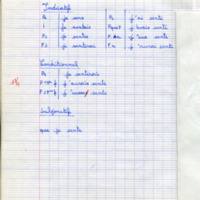 Indicatif
Pt je sens Pc j'ai senti
I je sentais PqpT j'avais senti
Ps je sentis P.A j'eus senti
F.s je sentirai F.a j'aurai senti
Conditionnel
Pt je sentirais
j'aurais senti
j'eusse senti
Subjonctif
que je sente